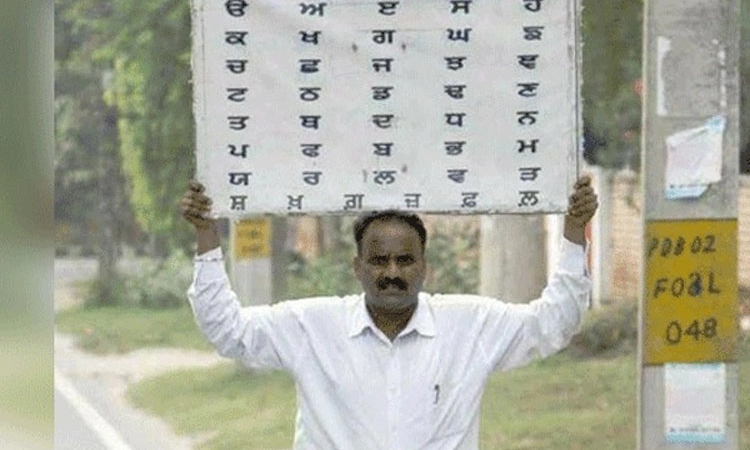 ੳ ਅ ੲ ਸ ਹ
ਕ ਖ ਗ ਘ ਙ
ਚ ਛ ਜ ਝ ਞ
ਟ ਠ ਡ ਢ ਣ
ਤ ਥ ਦ ਧ ਨ
ਪ ਫ ਬ ਭ ਮ
ਯ ਰ ਲ ਵ ੜ
ਸ਼ ਖ਼ ਗ਼ ਜ਼ ਫ਼ ਲ਼
PDB 02
048